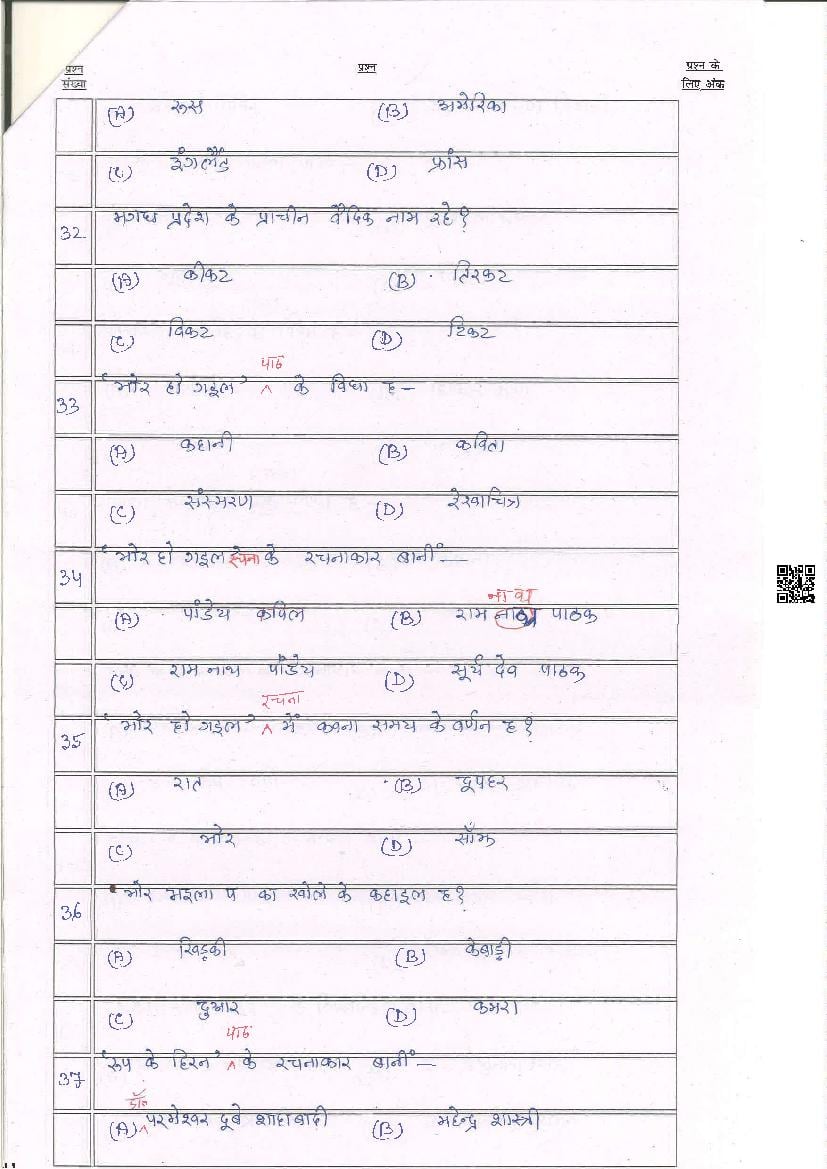 प्रश्न संख्या प्रश्न प्रश्न के लिए अंक
(A) रूस (B) अमेरिका
(C) इंगलैंड (D) फ्रांस
32 मगध प्रदेश के प्राचीन वैदिक नाम रहे?
(A) कीकट (B) तिरकट
(C) विकट (D) टिकट
33 'भोर हो गइल' पाठ के विधा ह -
(A) कहानी (B) कविता
(C) संस्मरण (D) रेखाचित्र
34 'भोर हो गइल रचना के रचनाकार बानीं -
(A) पांडेय कपिल (B) राम नाथ पाठक
(C) राम नाथ पांडेय (D) सूर्य देव पाठक
35 'भोर हो गइल' रचना में कवना समय के वर्णन ह?
(A) रात (B) दूपहर
(C) भोर (D) साँझ
36 भोर भइला प का खोले के कहाइल ह?
(A) खिड़की (B) केवाड़ी
(C) दुआर (D) कमरा
37 'रूप के हिरन' पाठ के रचनाकार बानीं -
(A) डॉ० परमेश्वर दूबे शाहाबादी (B) महेन्द्र शास्त्री